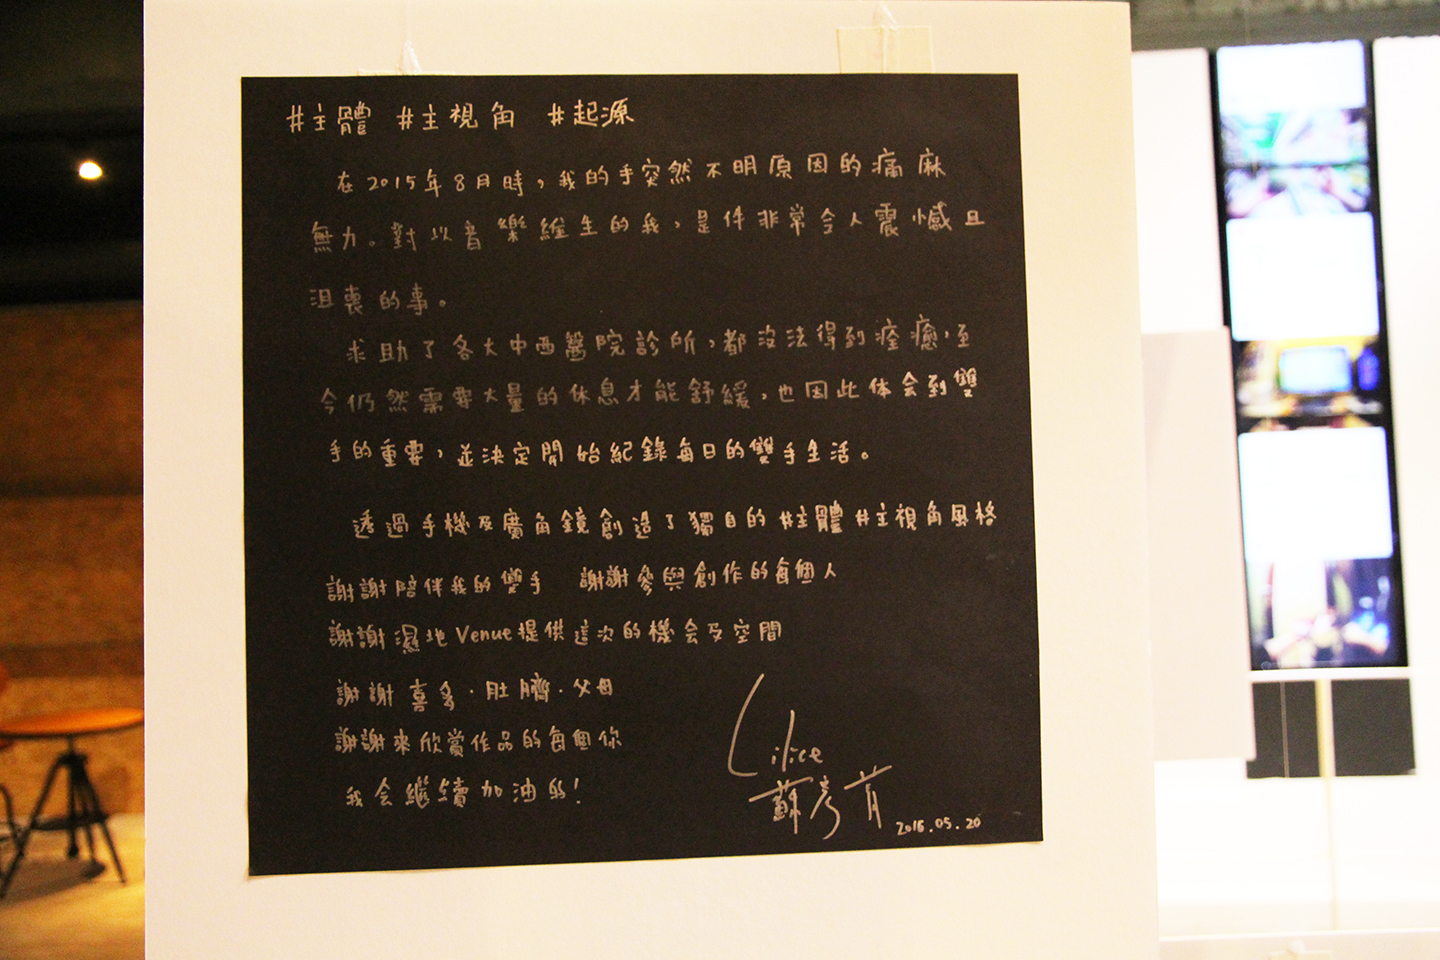 #主體 #主視角 #起源
在2015年8月時，我的手突然不明原因的痛麻
無力。對以音樂維生的我，是件非常令人震憾且
沮喪的事。
求助了各大中西醫院診所，都沒法得到痊癒，至
今仍然需要大量的休息才能舒緩，也因此体会到雙
手的重要，並決定開始紀錄每日的雙手生活。
透過手機及廣角鏡創造了獨自的#主體#主視角風格
謝謝陪伴我的雙手 謝謝參與創作的每個人
謝謝濕地Venue提供這次的機会及空間
謝謝喜多·肚臍·父母
謝謝來欣賞作品的每個你
我会繼續加油的！
Lilice
蘇彥
2016.05.20